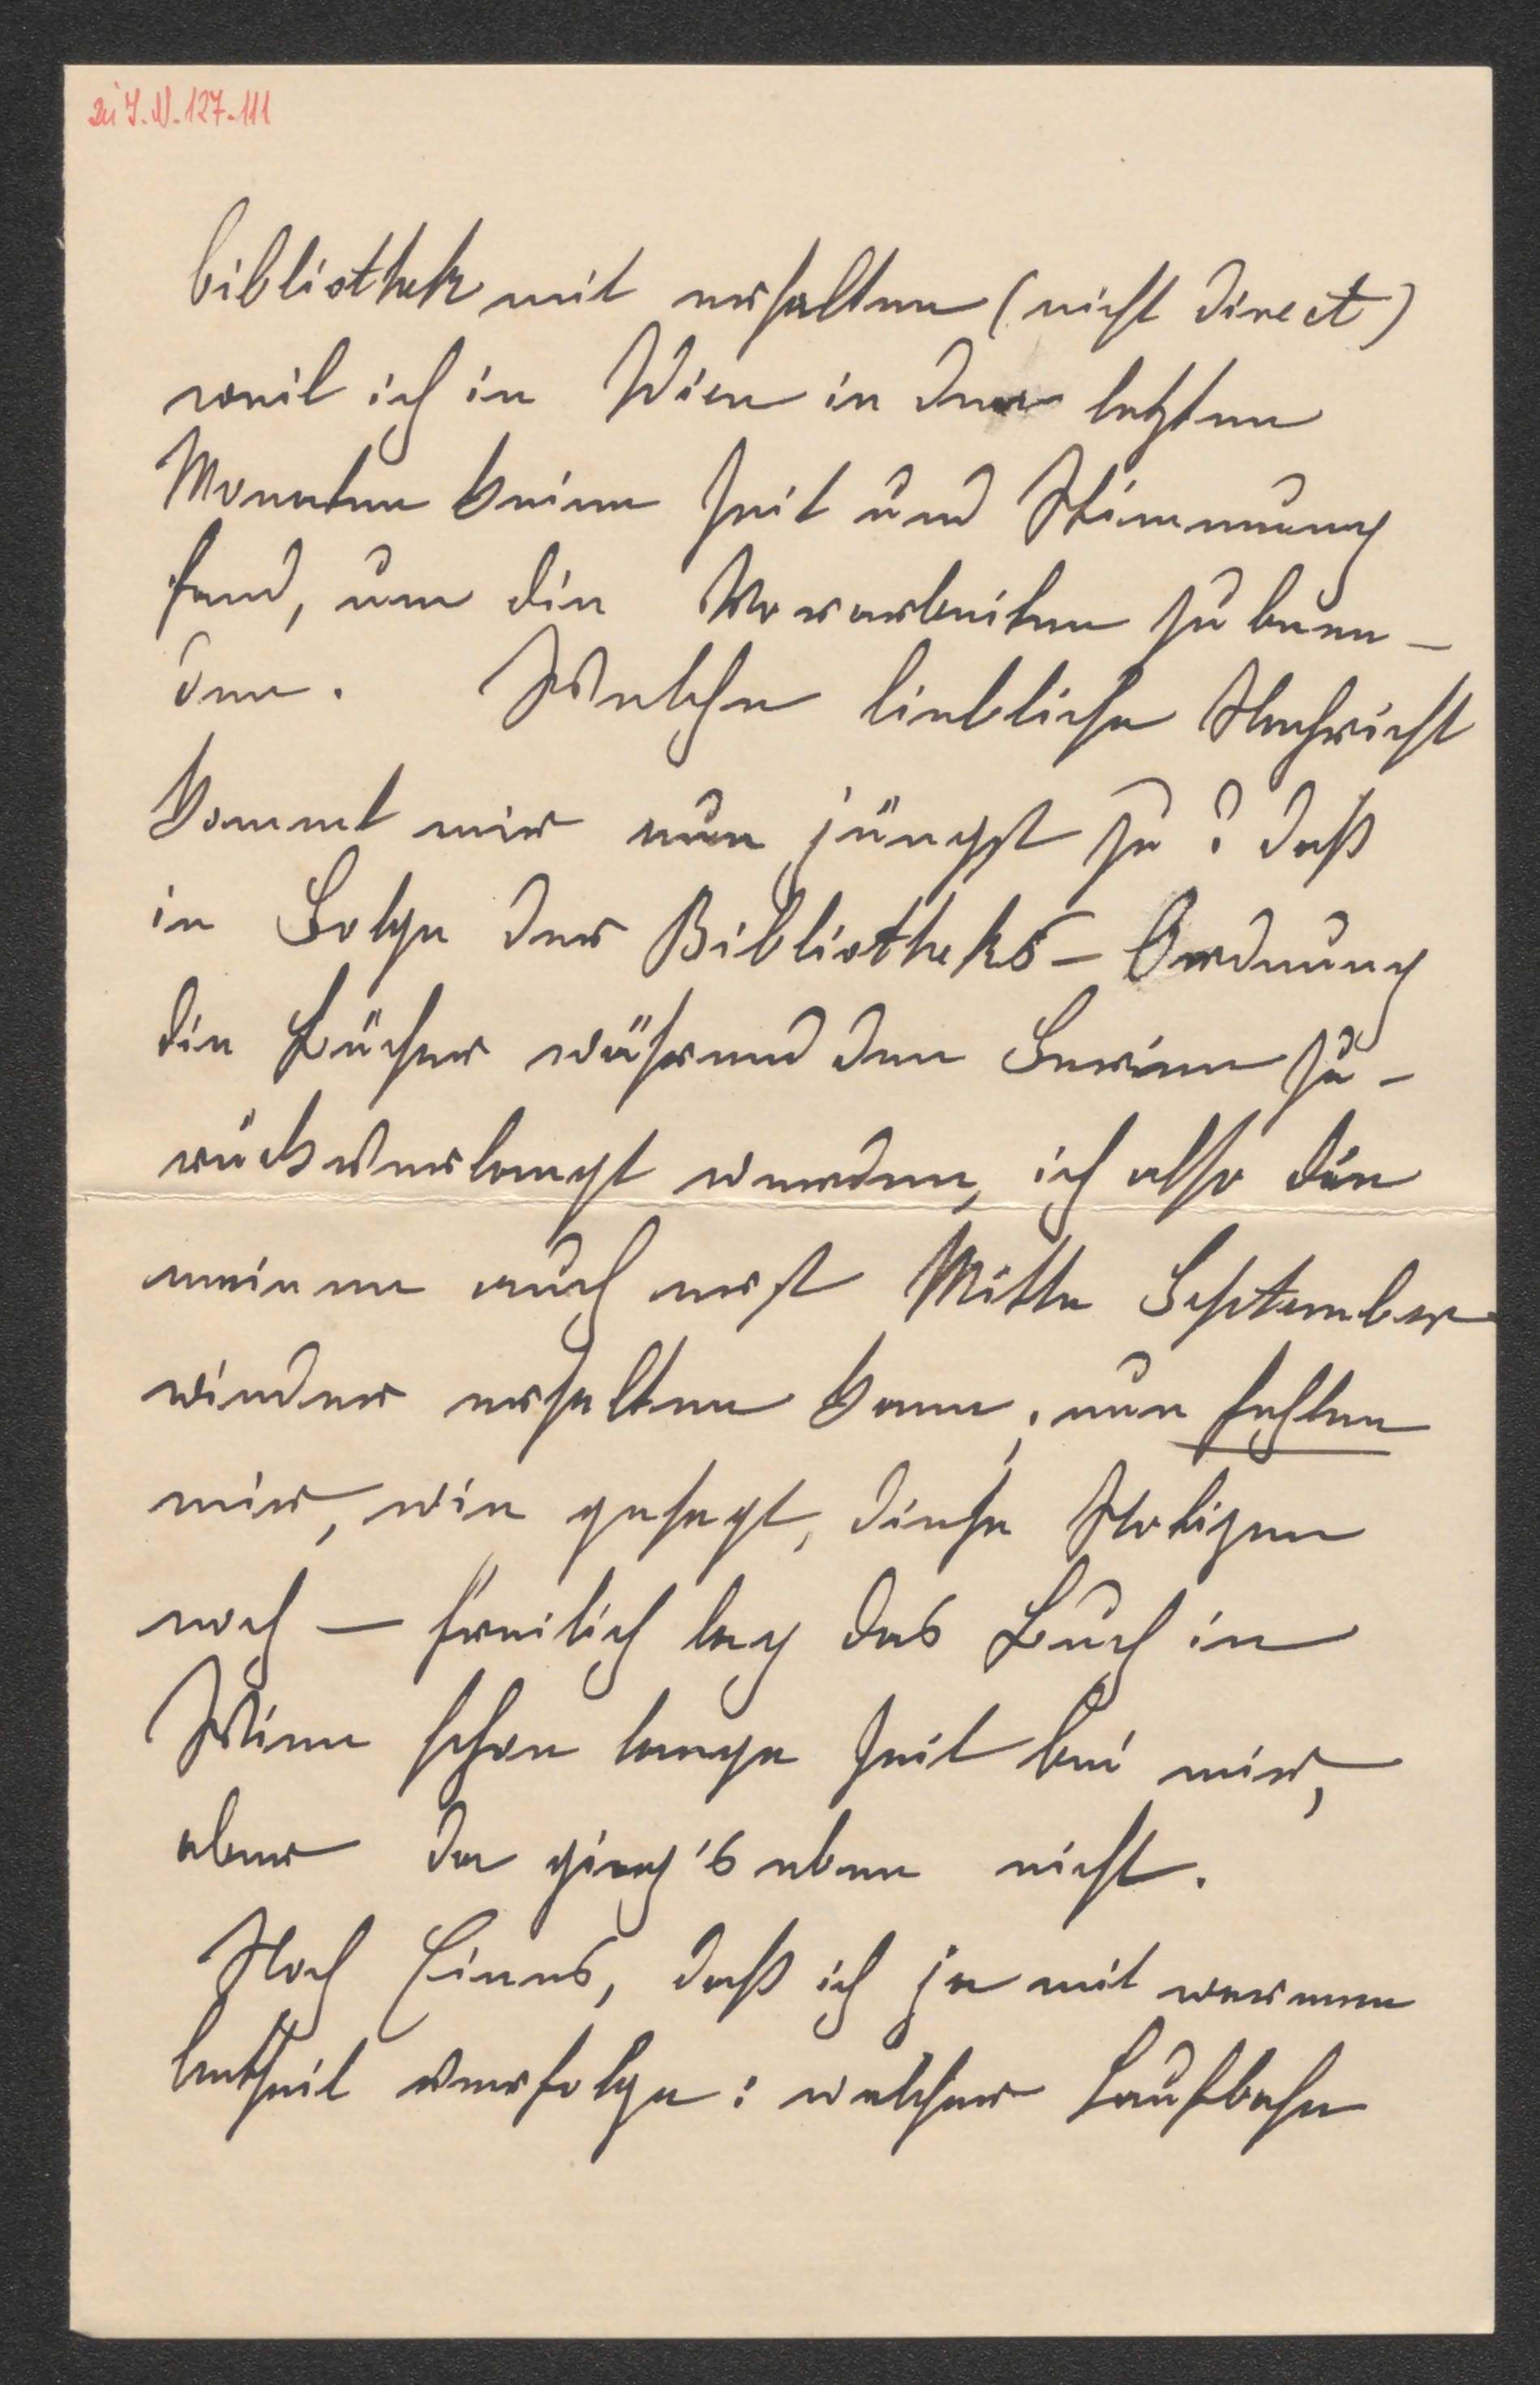 zu I.N. 127.111
bibliothek mit erhalten (nicht direct)
weil ich in Wien in den letzten
Monaten keine Zeit und Stimmung
fand, um die Vorarbeiten zu been-
den. Welche liebliche Nachricht
kommt mir nun jüngst zu? daß
in Folge der Bibliotheks-Ordnung
die Bücher während den Ferien zu-
rückverlangt werden, ich also die
meinen auch erst Mitte September
wieder erhalten kann; nun fehlen
mir, wie gesagt, diese Notizen
noch – freilich lag das Buch in
Wien schon lange Zeit bei mir,
aber da gieng's eben nicht.
Noch Eines, daß ich ja mit warmem
Antheil verfolge: welcher Laufbahn